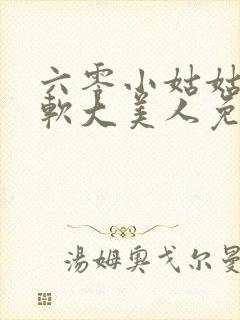 六零小姑姑
軟大美人免
湯姆奧戈尔曼